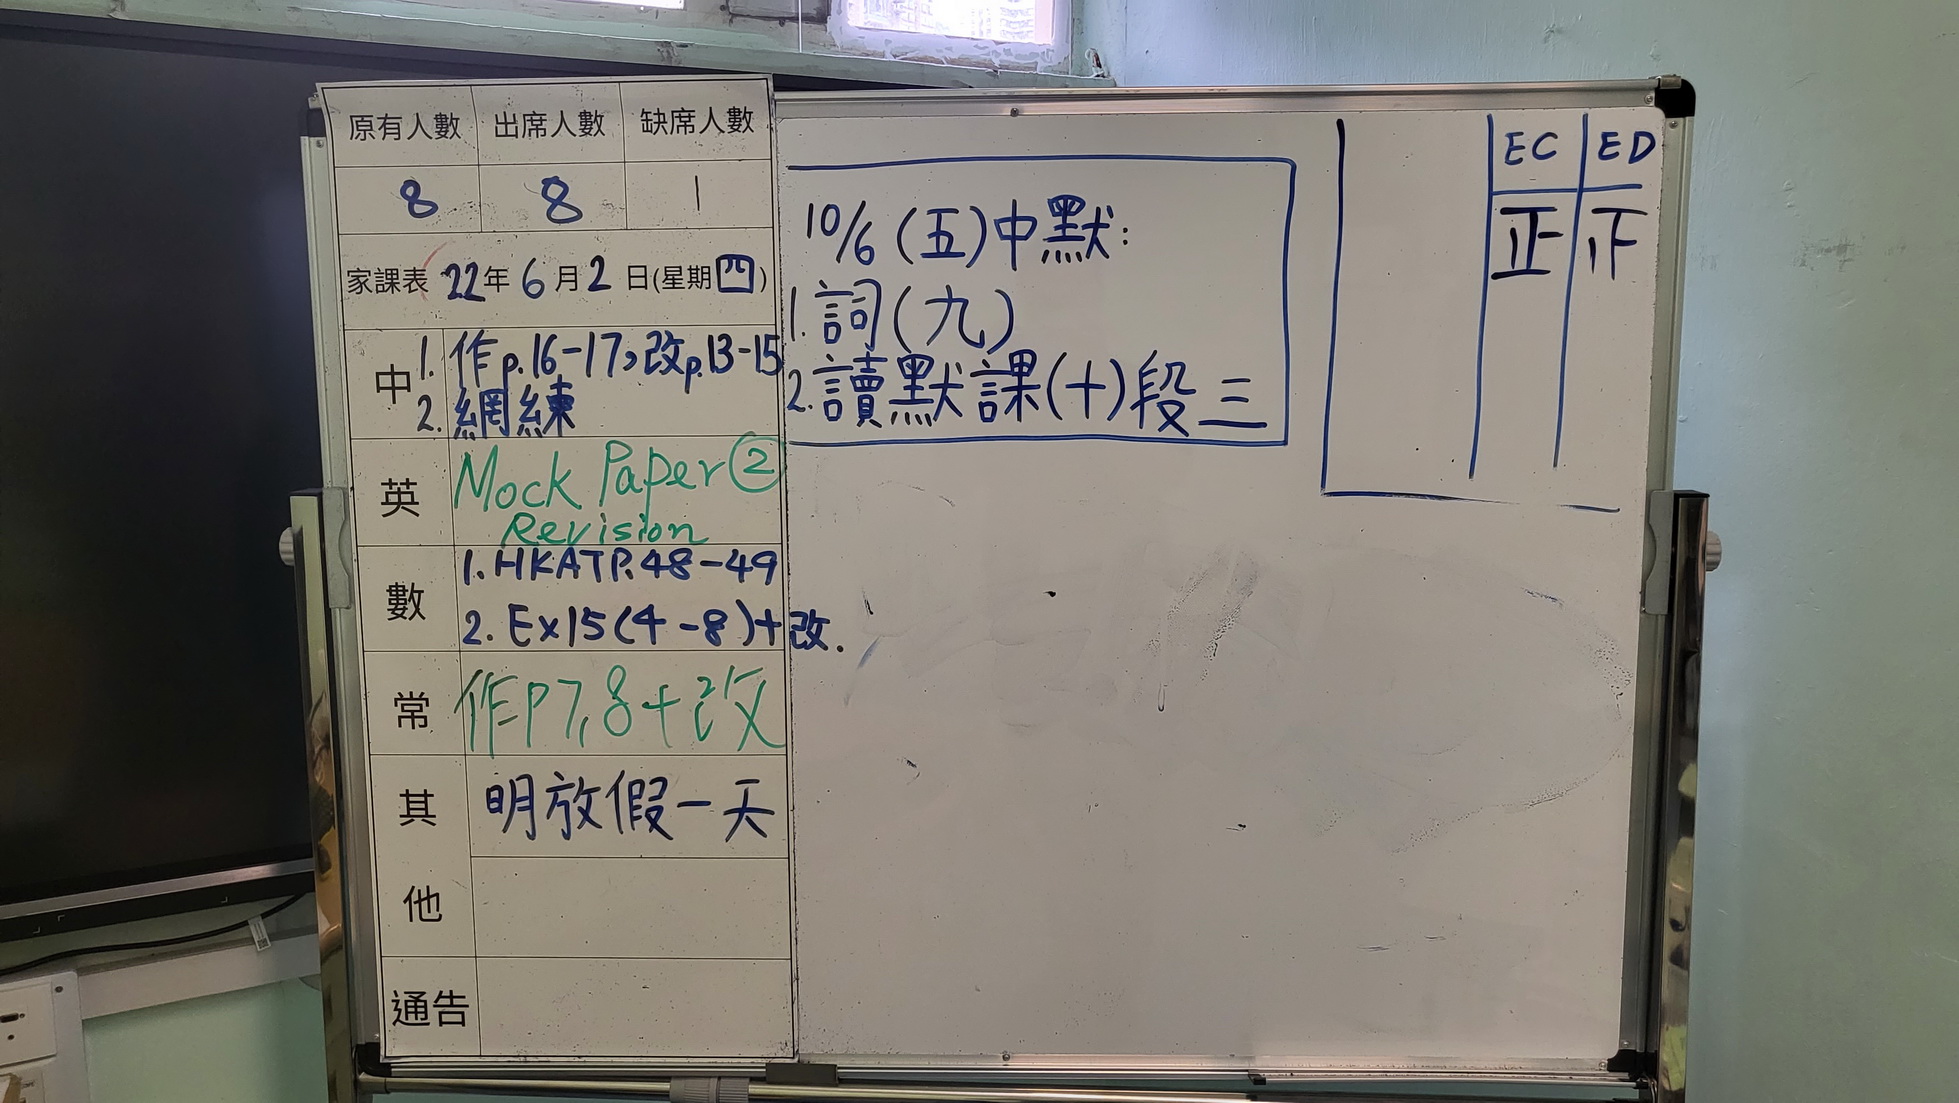 原有人數 出席人數 缺席人數
8 8 |
家課表 22年6月2日(星期四)
中 1. 作p.16-17,改p.13-15
2. 網練
英 Mock Paper②
Revision
數 1. HKATP.48-49
2. Ex15(4-8)+改.
常 作P7,8+改
其他 明放假一天
通告
10/6(五)中默:
1. 詞(九)
2. 讀默課(十)段三
EC ED
正 正